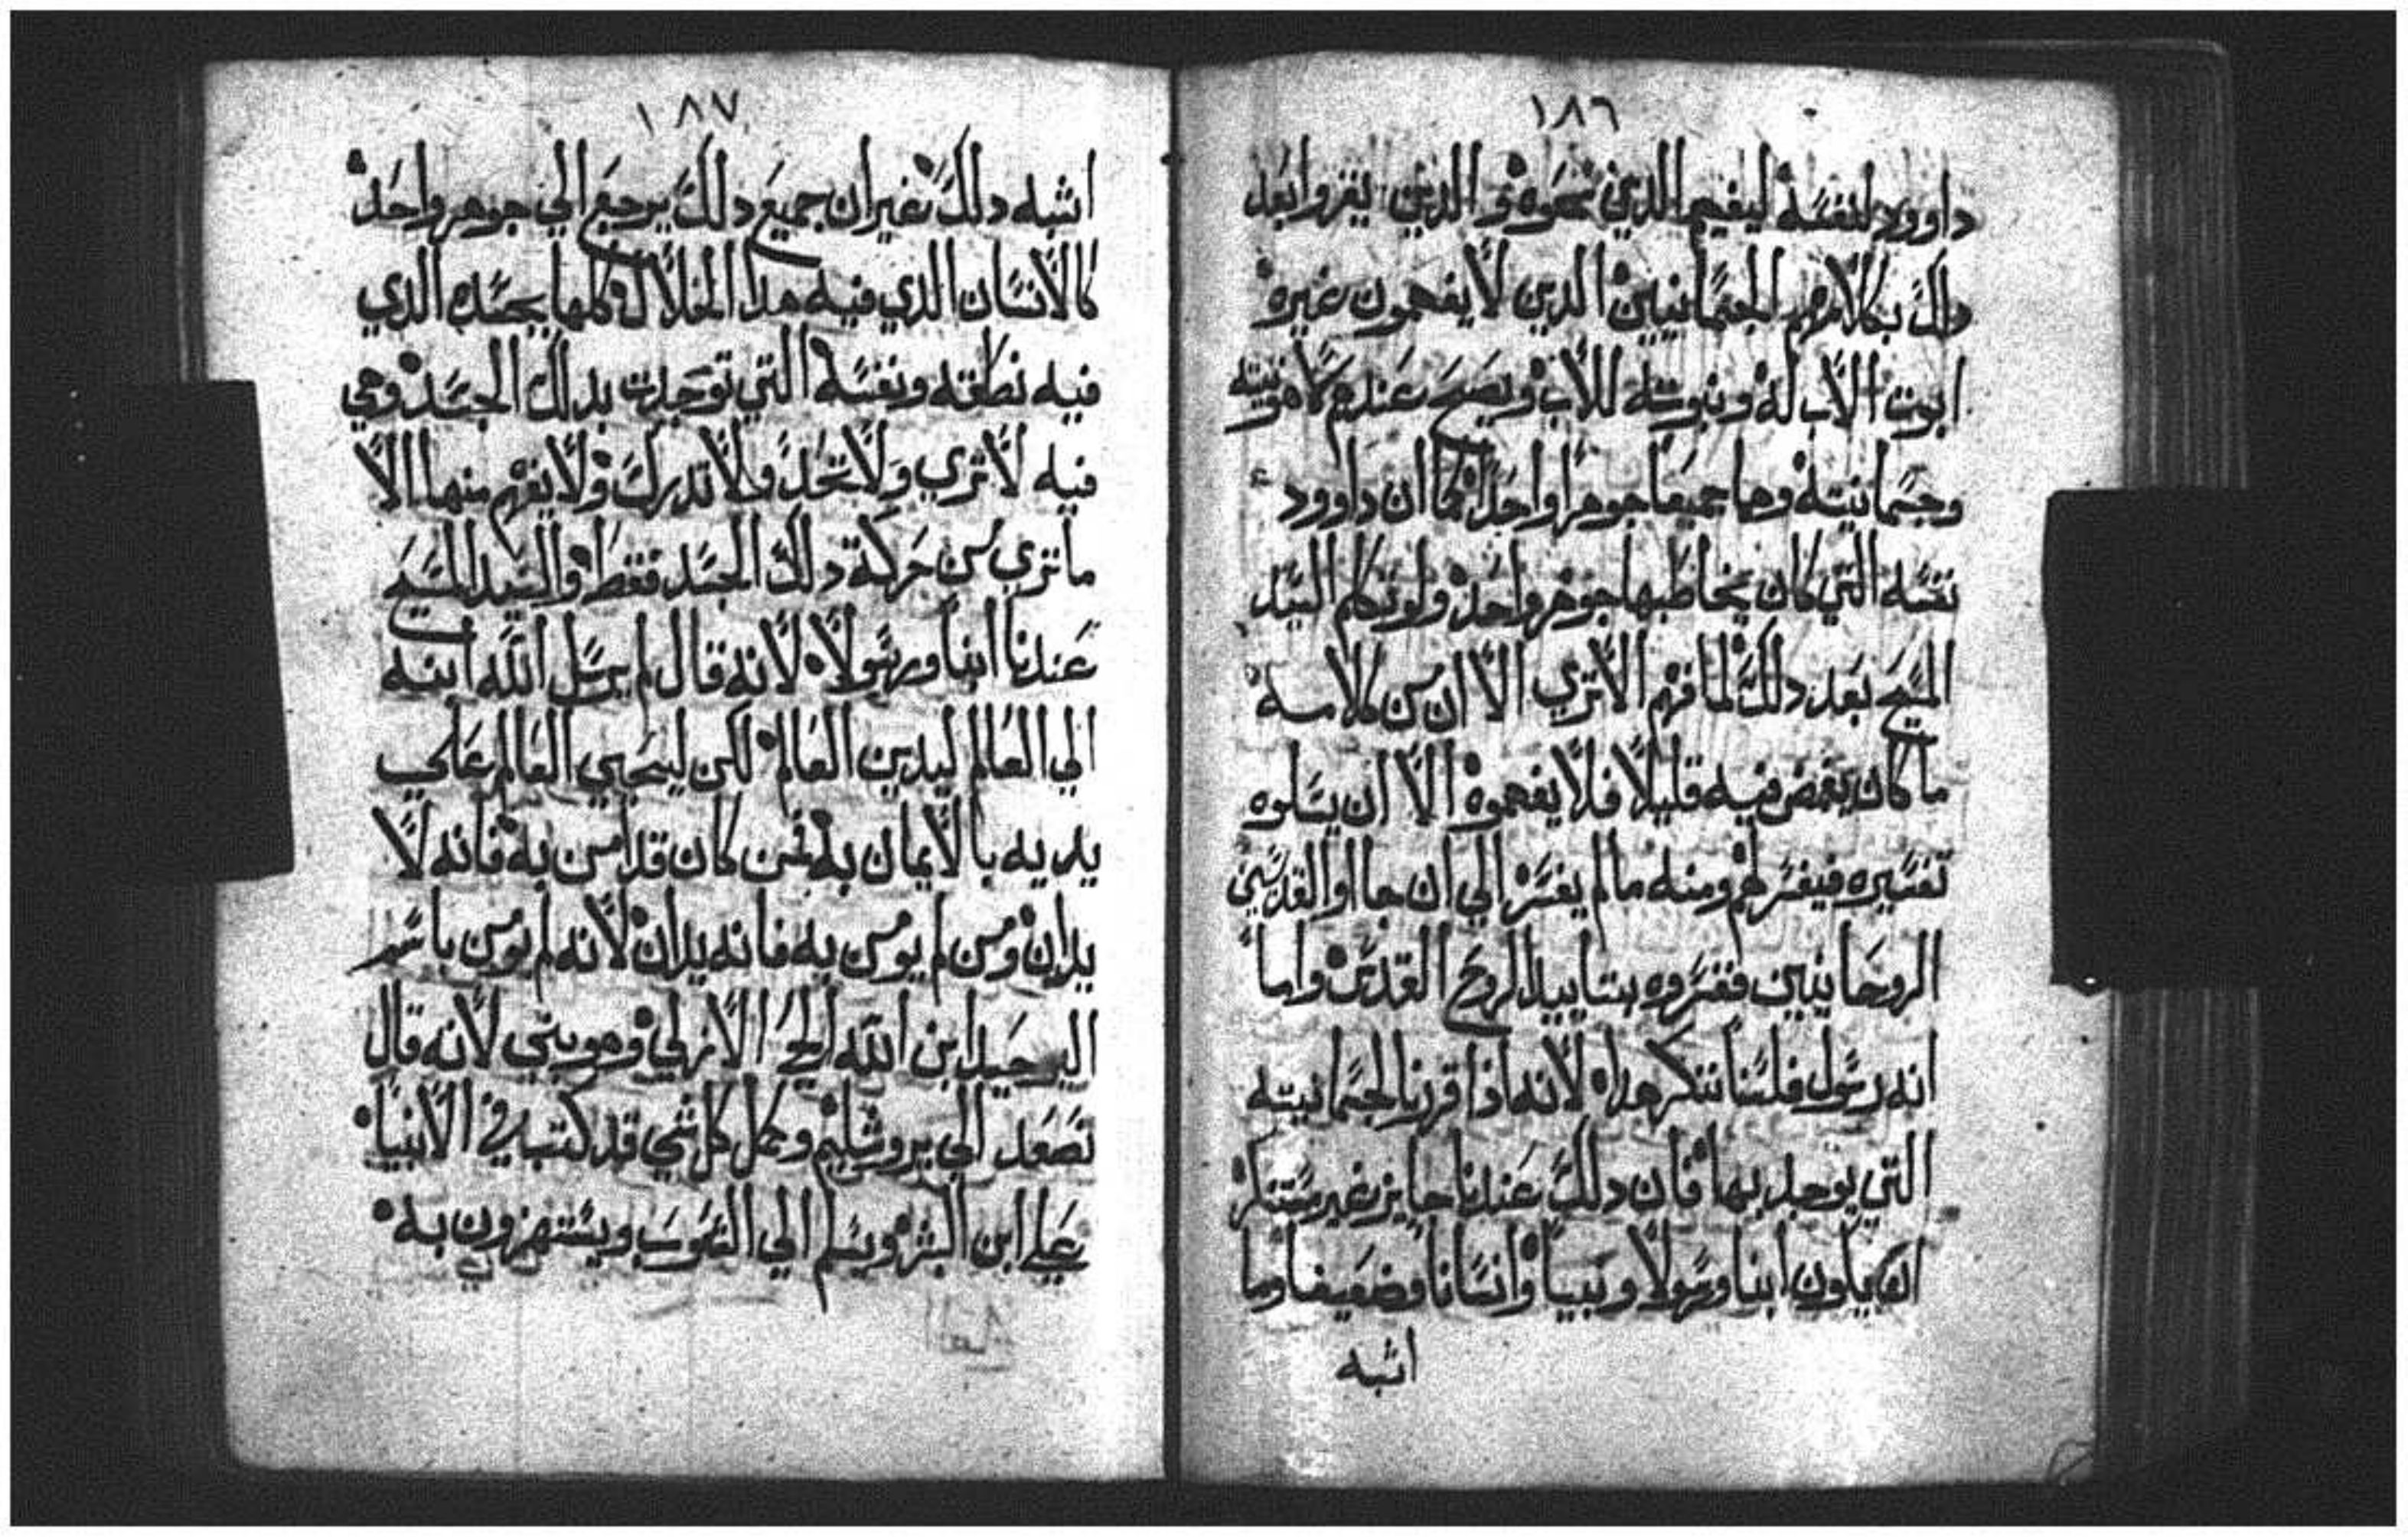 ١٨٦
داوود لنفسه ليفهم الذين نحوه والذين يقروا بعد
دلك بكلامهم الجسمانيين الدين لا يفهمون غيره
ابوت الاب له وبنوته للاب ويصح عندهم لاهوتيته
وجسمانيته وهما جميعا جوهرا واحدا كما ان داوود
نفسه التي كان يخاطبها جوهر واحد ولو تكلم السيد
المسيح بعد دلك لما فهم الا تري الا ان من كلامه
ما كان يغمض فيه قليلا فلا يفهموه الا ان يسلوه
تفسيره فيفسر لهم ومنه ما لم يفسر الي ان جا اوا القديسين
الروحانيين ففسروه بتاييد الروح القدس واما
انه رسول فلسنا ننكر هدا لانه اذا قرنا الجسمانيته
التي توحد بها فان دلك عندنا جايز غير مستنكر
ان يكون ابنا ورسولا ونبيا وانسانا وضعيفا وما
اشبه
١٨٧
اشبه دلك غير ان جميع دلك يرجع الي جوهر واحد
كالانسان الذي فيه هدا الخلال كلها بجسده الذي
فيه نطقه ونفسه التي توحدت بدلك الجسد وهي
فيه لا تري ولا تحد ولا تدرك ولا يفهم منها الا
ما تري من حركة دلك الجسد فقط والسيد المسيح
عندنا ابنا ورسولا لانه قال لم يرسل الله ابنه
الي العالم ليدين العالم لكن ليحيي العالم علي
يديه بالايمان به فمن كان قد امن به فانه لا
يدان ومن لم يومن به فانه يدان لانه لم يومن باسم
الوحيد ابن الله الحي الازلي وهو نبي لانه قال
نصعد الي يروشليم وكمل كل شي قد كتب في الانبيا
علي ابن البشر ويسلم الي الشعوب ويستهزون به